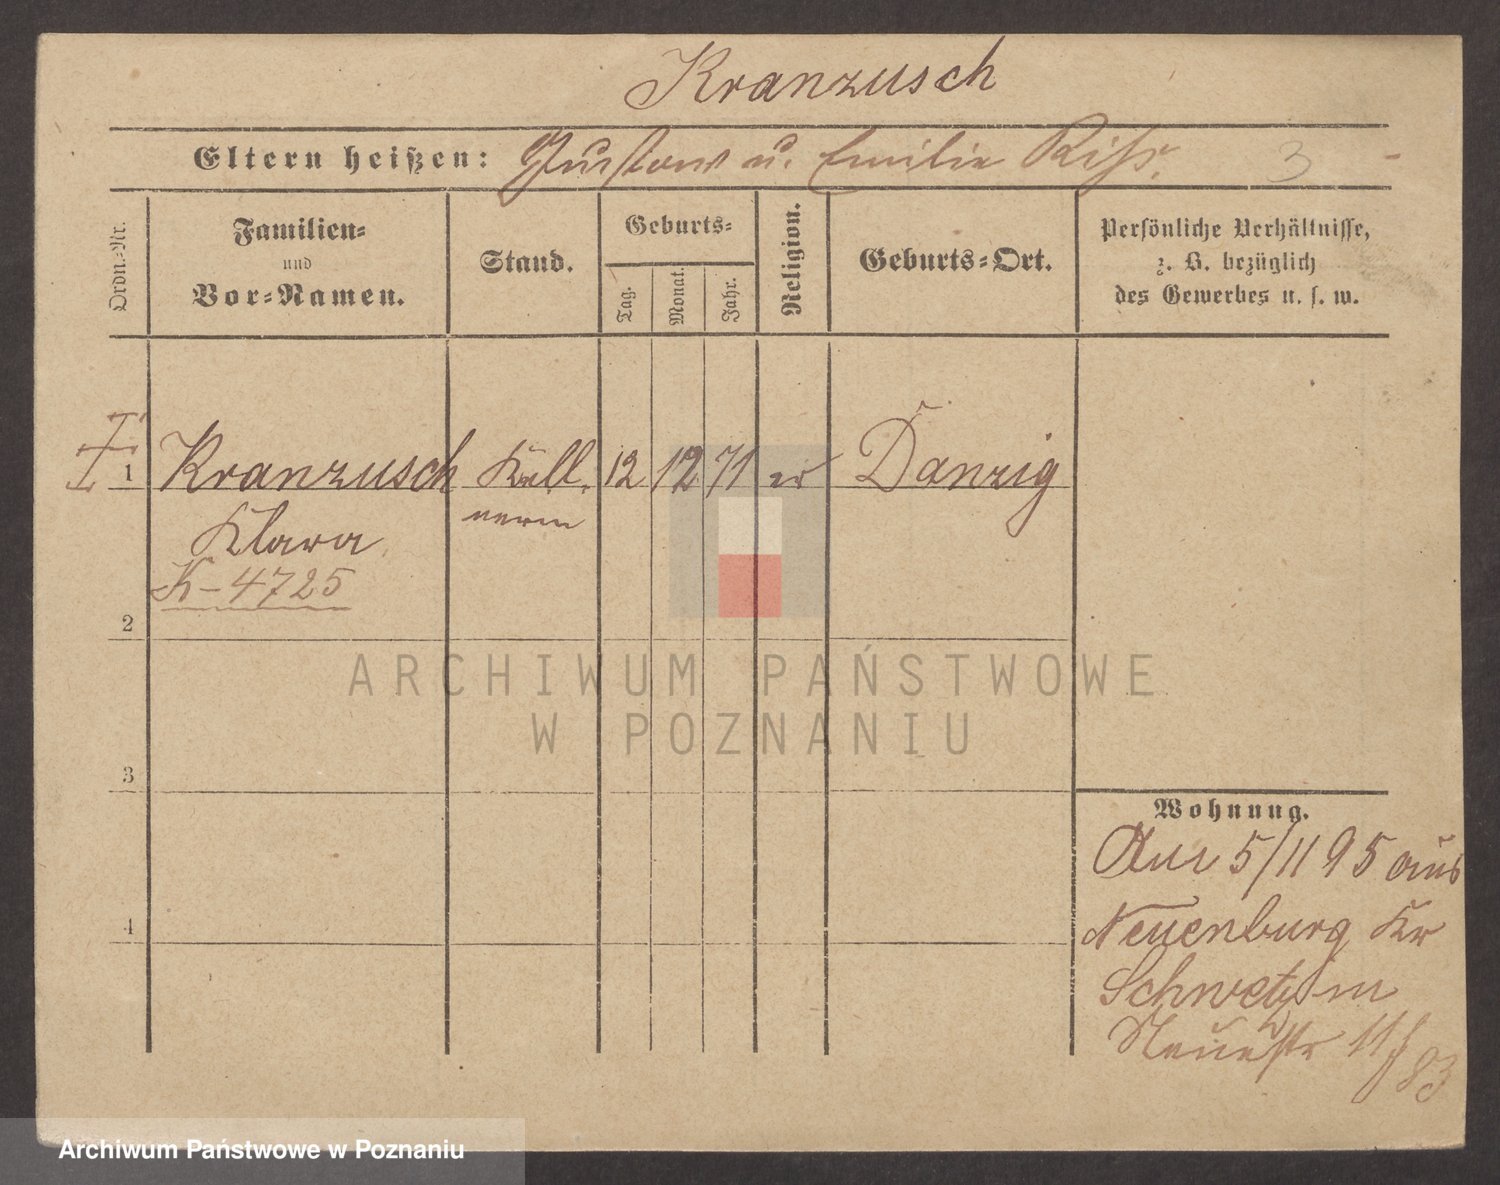 Kranzusch
Eltern heißen: Gustav u. Emilie
3
Ordn.-Nr.
Familien-
und
Vor-Namen.
Stand.
Geburts-
Tag.
Monat.
Jahr.
Religion.
Geburts-Ort.
Persönliche Verhältnisse,
z. B. bezüglich
des Gewerbes u. s. w.
1 Kranzusch Kell- 12 12 71 ev Danzig
Klara nerin
K-4725
2
3
4
Wohnung.
5/11 95 aus
Neuenburg Kr
Schwetz in
Neuestr
ARCHIWUM PAŃSTWOWE
W POZNANIU
Archiwum Państwowe w Poznaniu